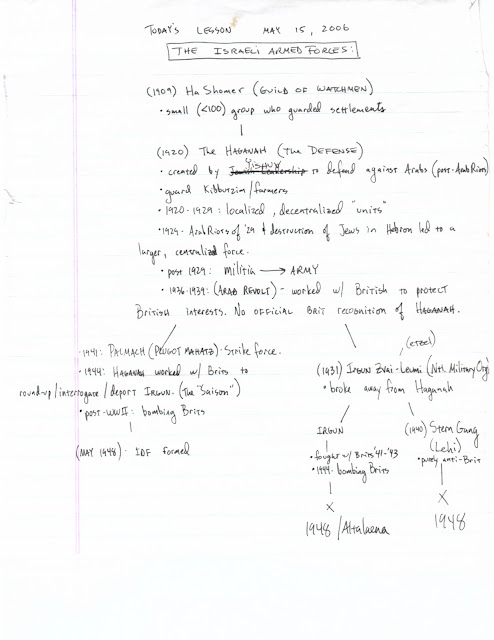 TODAY'S LESSON MAY 15, 2006
THE ISRAELI ARMED FORCES:
(1909) HaShomer (GUILD OF WATCHMEN)
• small (<100) group who guarded settlements
(1920) THE HAGANAH (The DEFENSE)
YISHUV
• created by Jewish Leadership to defend against Arabs (post-Arab Riots)
• guard Kibbutzim/farmers
• 1920-1929: localized, decentralized "units"
• 1929- Arab Riots of '29 & destruction of Jews in Hebron led to a
larger, centralized force.
• post 1929: Militia → ARMY
• 1936-1939: (ARAB REVOLT) - worked w/ British to protect
British interests. No official Brit recognition of HAGANAH.
• 1941: PALMACH (PLUGOT MAHATZ): Strike force.
• 1944: HAGANAH worked w/ Brits to
round-up/interrogate/deport IRGUN. (The "Saison")
• post-WWII: bombing Brits
(MAY 1948) - IDF formed
(etzel)
(1931) IRGUN Zvai-Leumi (Ntl. Military Org)
• broke away from Haganah
IRGUN
• fought w/ Brits '41-'43
• 1944- bombing Brits
X
1948/Altalaena
(1940) Stern Gang
(Lehi)
• purely anti-Brit
X
1948